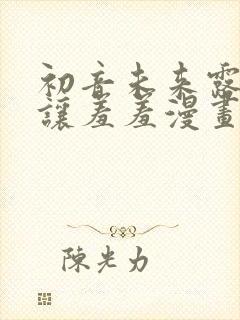 初音未来露
讓羞羞漫畫
陳光力